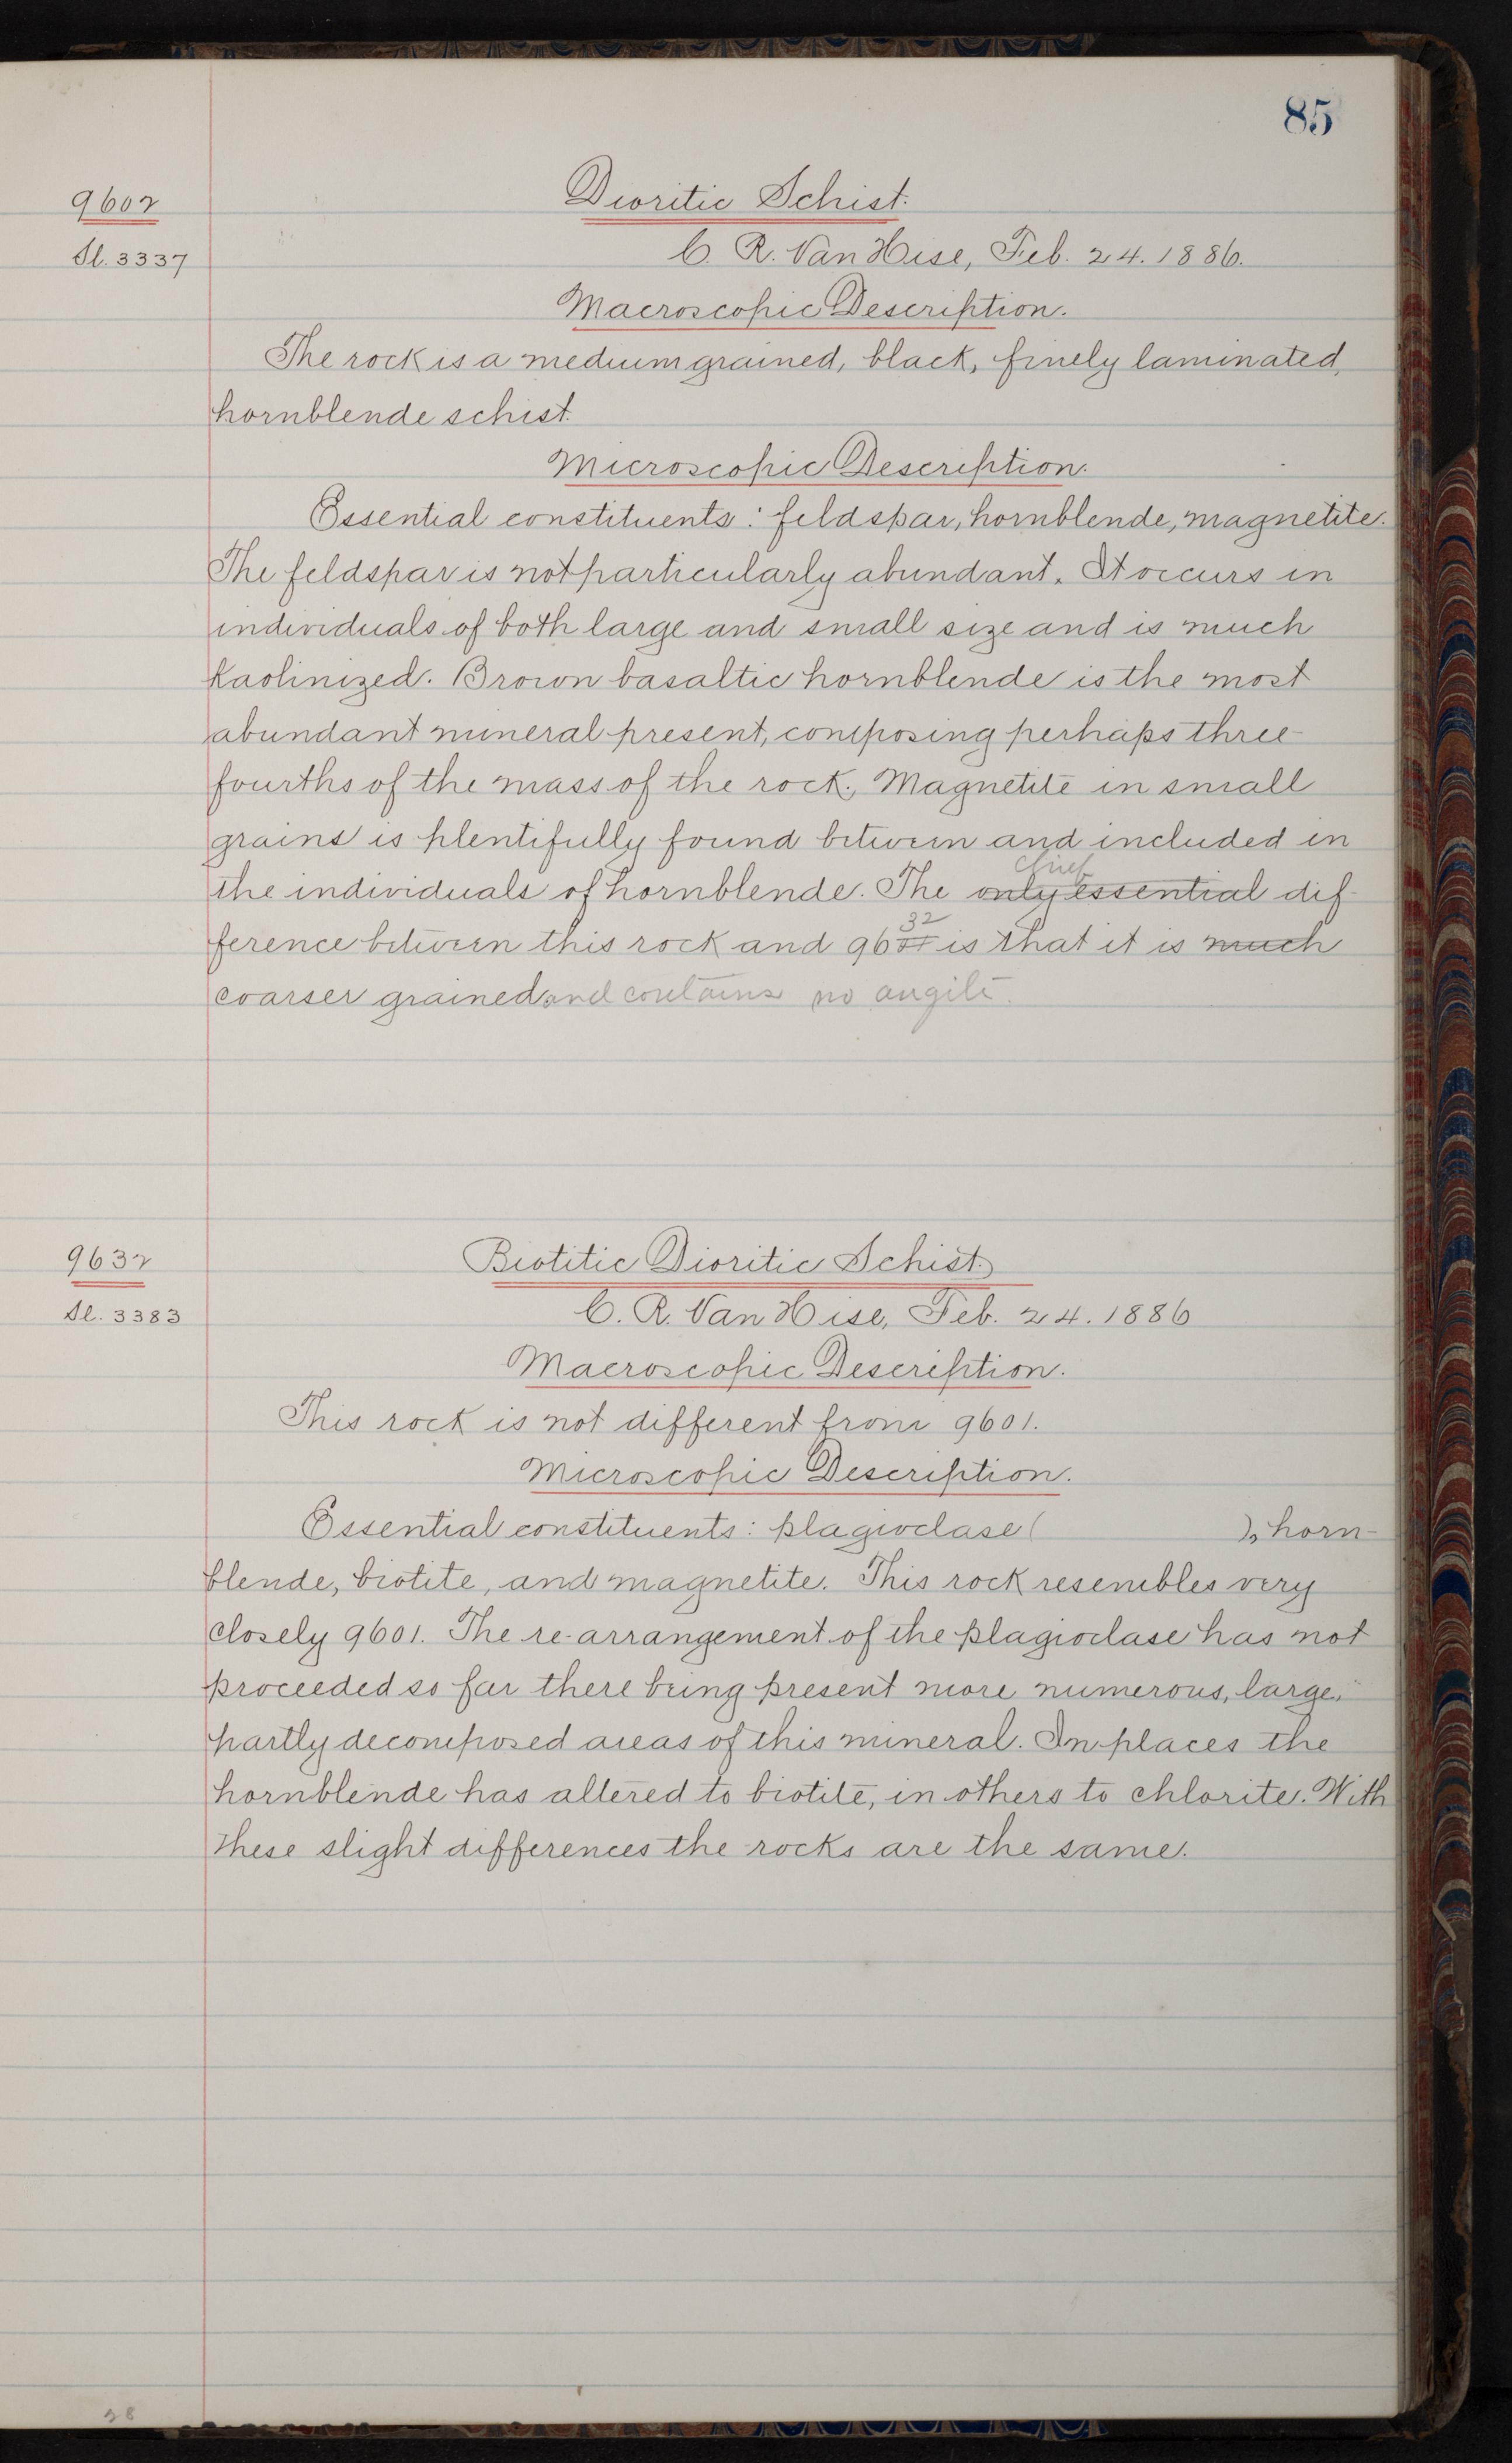 85
9602
Dioritic Schist.
Sl. 3337
C. R. Van Hise, Feb. 24. 1886.
Macroscopic Description.
The rock is a medium grained, black, finely laminated,
hornblende schist.
Microscopic Description.
Essential constituents: feldspar, hornblende, magnetite.
The feldspar is not particularly abundant. It occurs in
individuals of both large and small size and is much
kaolinized. Brown basaltic hornblende is the most
abundant mineral present, composing perhaps three-
fourths of the mass of the rock. Magnetite in small
grains is plentifully found between and included in
chief
the individuals of hornblende. The only essential dif-
32
ference between this rock and 9601 is that it is much
coarser grained and contains no augite.
9632
Biotitic Dioritic Schist.
Sl. 3383
C. R. Van Hise, Feb. 24. 1886
Macroscopic Description.
This rock is not different from 9601.
Microscopic Description.
Essential constituents: plagioclase ( ), horn-
blende, biotite, and magnetite. This rock resembles very
closely 9601. The re-arrangement of the plagioclase has not
proceeded so far there being present more numerous, large,
partly decomposed areas of this mineral. In places the
hornblende has altered to biotite, in others to chlorite. With
these slight differences the rocks are the same.